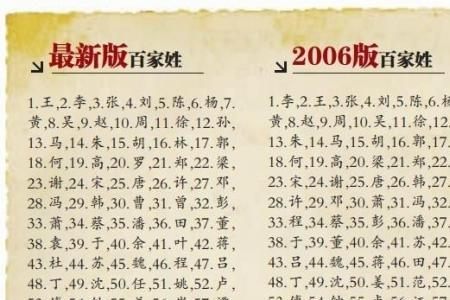 最新版百家姓
1.王,2.李,3.张,4.刘,5.陈,6.杨,7.
黄,8.吴,9.赵,10.周,11.徐,12.孙,
13.马,14.朱,15.胡,16.林,17.郭,
18.何,19.高,20.罗,21.郑,22.梁,
23.谢,24.宋,25.唐,26.许,27.邓,
28.冯,29.韩,30.曹,31.曾,32.彭,
33.萧,34.蔡,35.潘,36.田,37.董,
38.袁,39.于,40.余,41.叶,42.蒋,
43.杜,44.苏,45.魏,46.程,47.吕,
48.丁,49.沈,50.任,51.姚,52.卢,
2006版百家姓
1.李,2.王,3.张,4.刘,5.陈,6.杨
黄,8.赵,9.周,10.吴,11.徐,12
13.朱,14.马,15.胡,16.郭,
18.何,19.高,20.梁,21.郑,2
23.宋,24.谢,25.唐,26.韩,2
28.许,29.邓,30.萧,31.冯,32
33.程,34.蔡,35.彭,36.潘,37
38.于,39.董,40.余,41.苏,42
43.吕,44.魏,45.蒋,46.田,47
48.丁,49.沈,50.姜,51.范,52